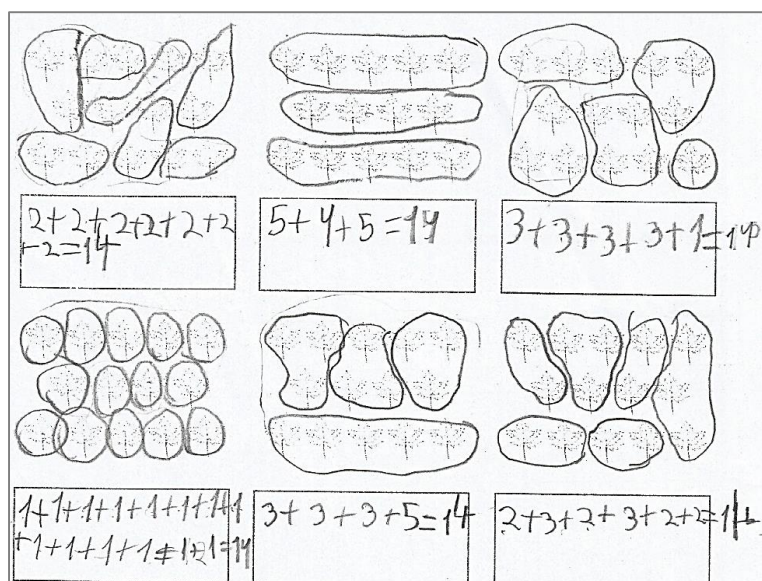 2+2+2+2+2+2
+2=14
5+4+5=14
3+3+3+3+1=14
1+1+1+1+1+1+1+1
3+3+3+5=14
2+3+2+3+2+2=14